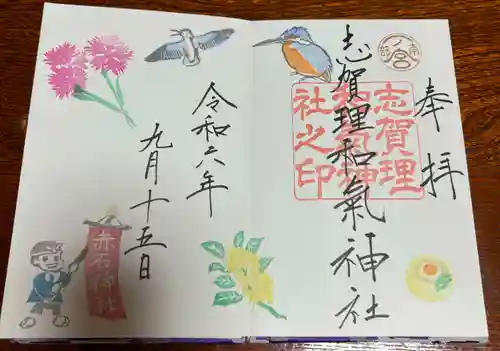 奉拝
志賀理和氣神社
志賀理
和氣神
社之印
令和六年
九月十五日
赤石神社